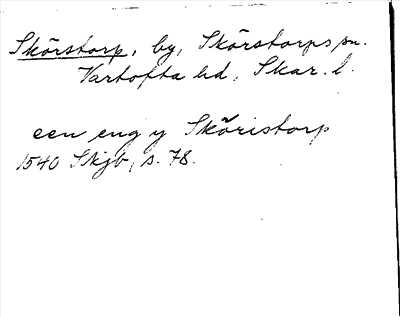 Skörstorp, by, Skörstorps sn.
Vartofta hd, Skar. l.
een eng y Sköristorp
1540 Skjb, s. 78.